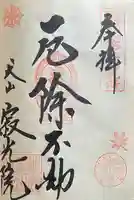 奉拝
厄除不動
犬山
寂光院